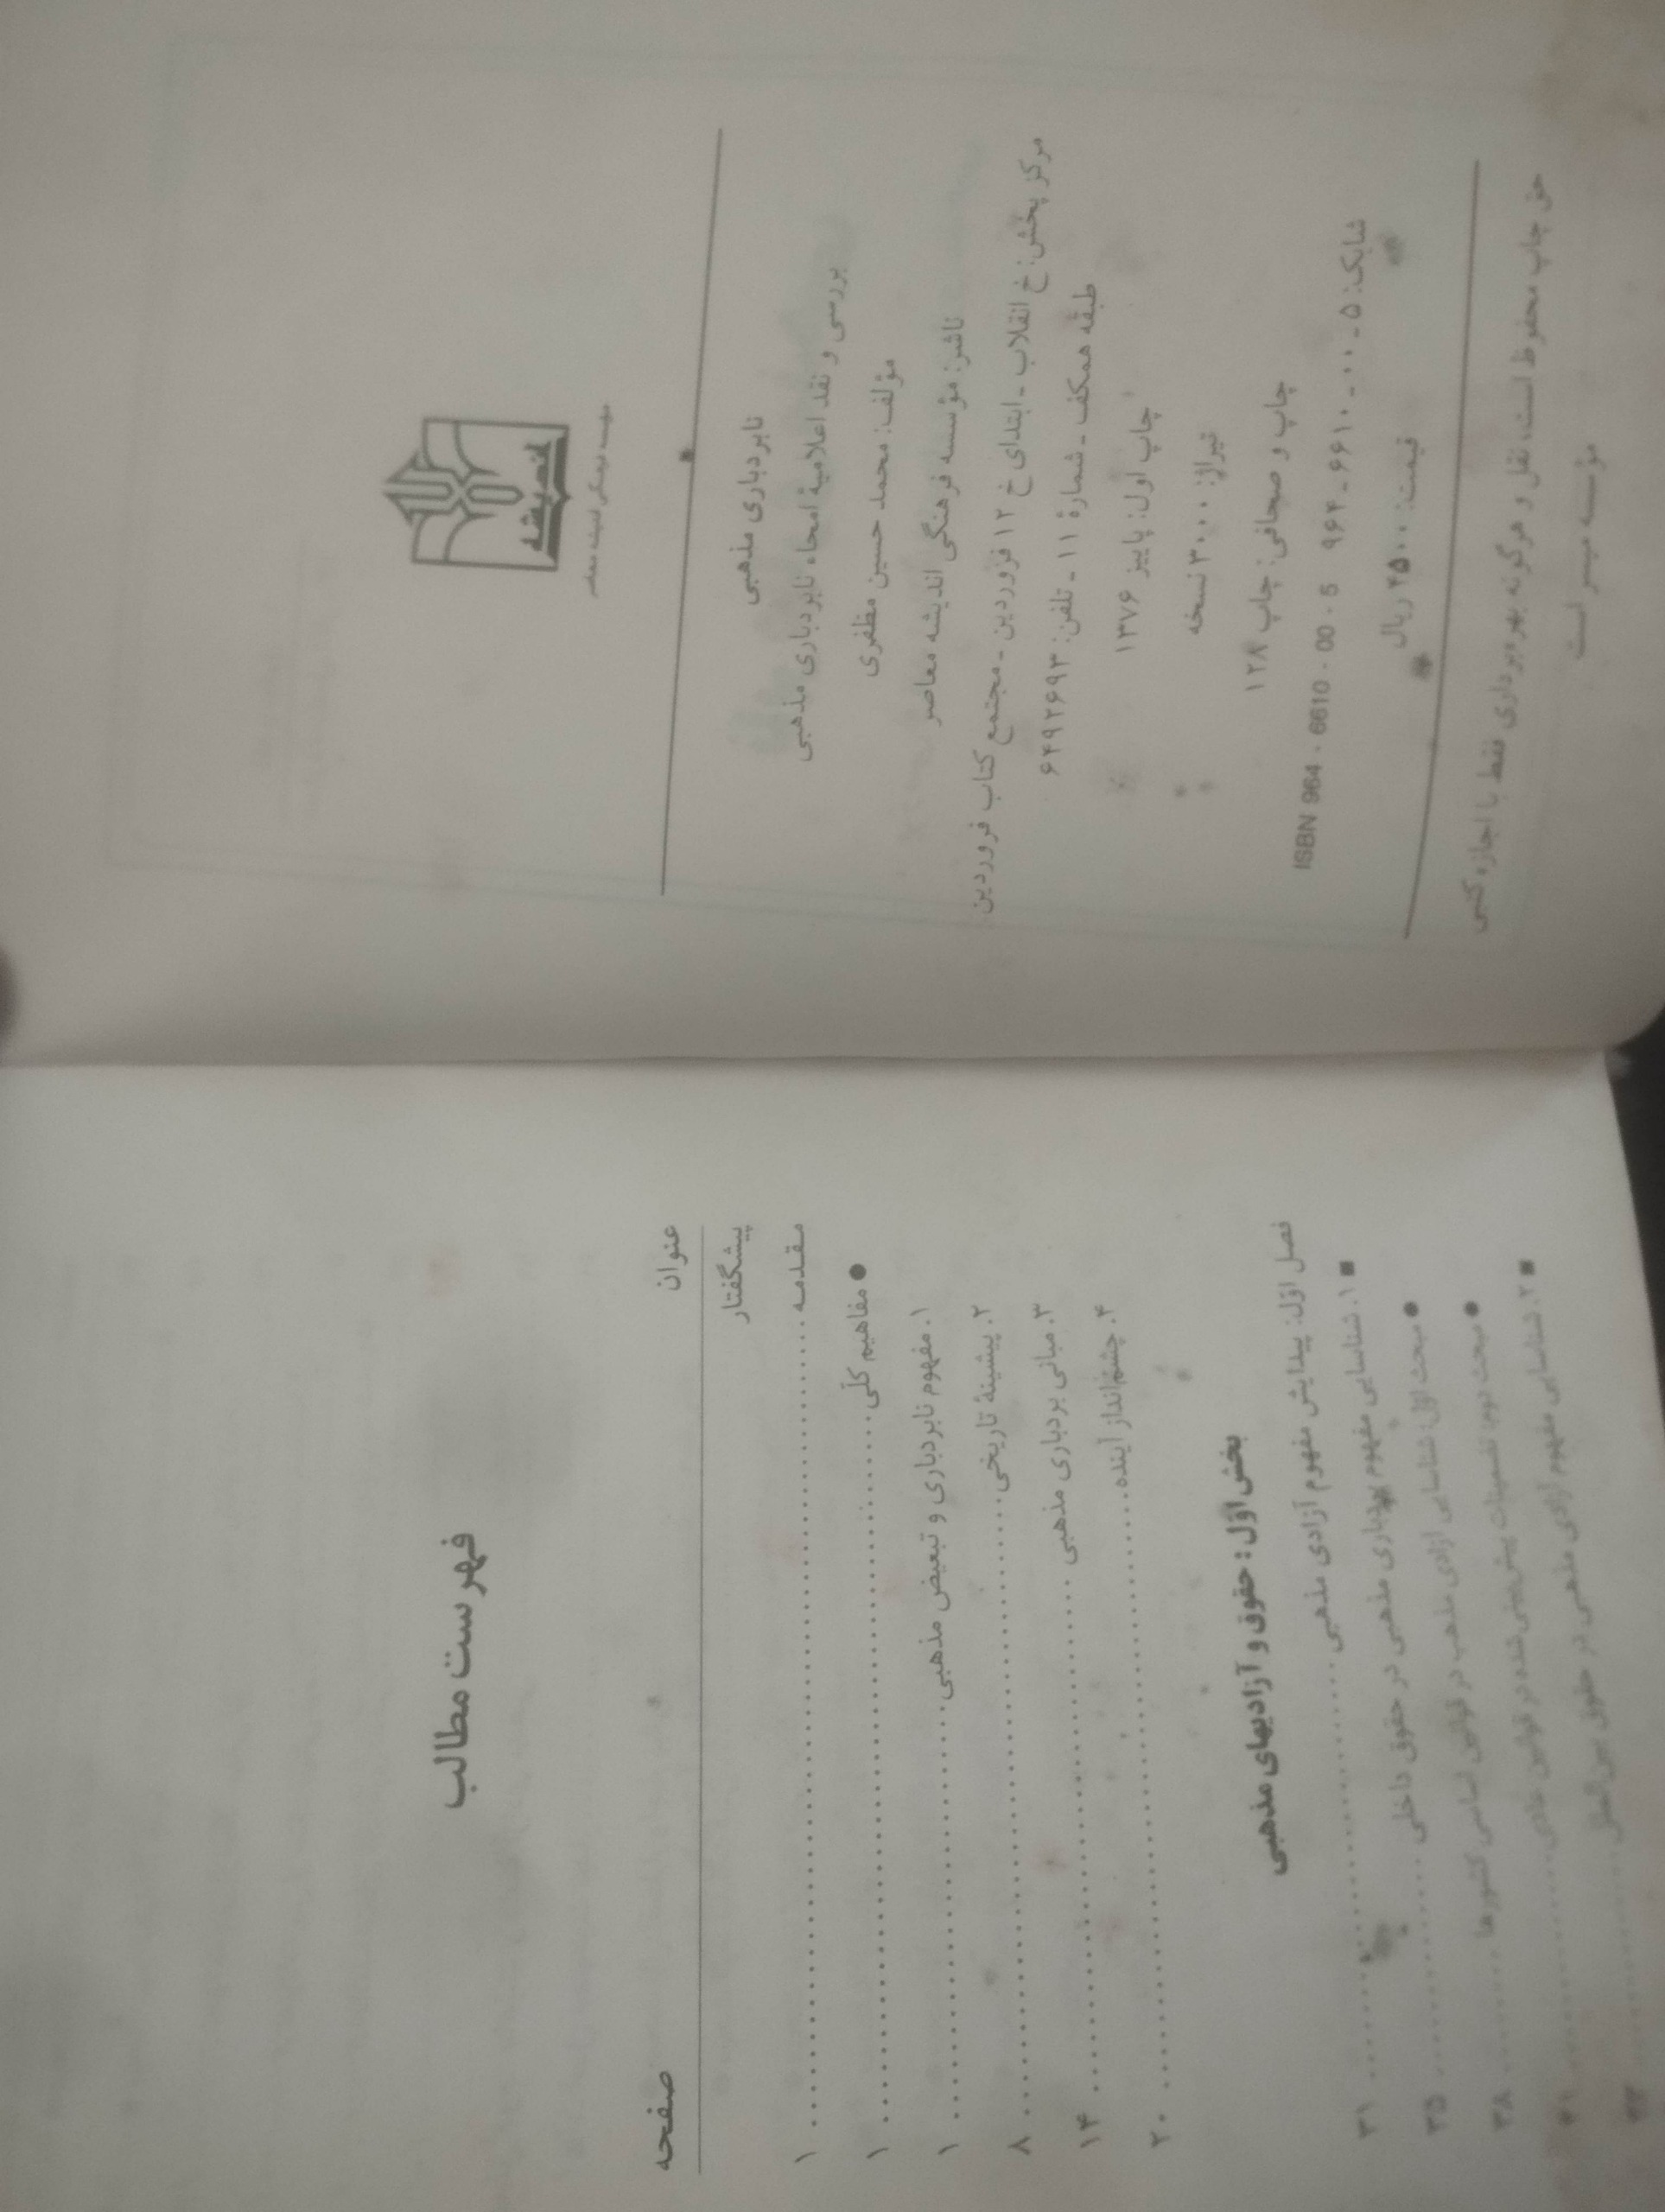 اندیشه
مؤسسه فرهنگی اندیشه معاصر
نابردباری مذهبی
بررسی و نقد اعلامیهٔ امحاء نابردباری مذهبی
مؤلف: محمد حسین مظفری
ناشر: مؤسسه فرهنگی اندیشه معاصر
مرکز پخش: خ انقلاب ـ ابتدای خ ۱۲ فروردین ـ مجتمع کتاب فروردین
طبقه همکف ـ شمارهٔ ۱۱ ـ تلفن: ۶۴۹۲۶۹۳
چاپ اول: پاییز ۱۳۷۶
تیراژ: ۳۰۰۰ نسخه
چاپ و صحافی: چاپ ۱۲۸
شابک: ۵ ـ ۰۰ ـ ۶۶۱۰ ـ ۹۶۴ ISBN 964 - 6610 - 00 - 5
قیمت: ۴۵۰۰ ریال
حق چاپ محفوظ است، نقل و هرگونه بهره‌برداری فقط با اجازه کتبی
مؤسسه میسر است
فهرست مطالب
عنوان صفحه
پیشگفتار
مقدمه ........ ۱
● مفاهیم کلّی ........ ۱
۱. مفهوم نابردباری و تبعیض مذهبی ........ ۱
۲. پیشینهٔ تاریخی ........ ۸
۳. مبانی بردباری مذهبی ........ ۱۴
۴. چشم‌انداز آینده ........ ۲۰
بخش اوّل: حقوق و آزادیهای مذهبی
فصل اوّل: پیدایش مفهوم آزادی مذهبی ........ ۳۱
■ ۱. شناسایی مفهوم بردباری مذهبی در حقوق داخلی ........ ۳۵
● مبحث اوّل: شناسایی آزادی مذهب در قوانین اساسی کشورها ........ ۳۸
● مبحث دوم: تضمینات پیش‌بینی شده در قوانین عادی ........
■ ۲. شناسایی مفهوم آزادی مذهبی در حقوق بین‌الملل ........